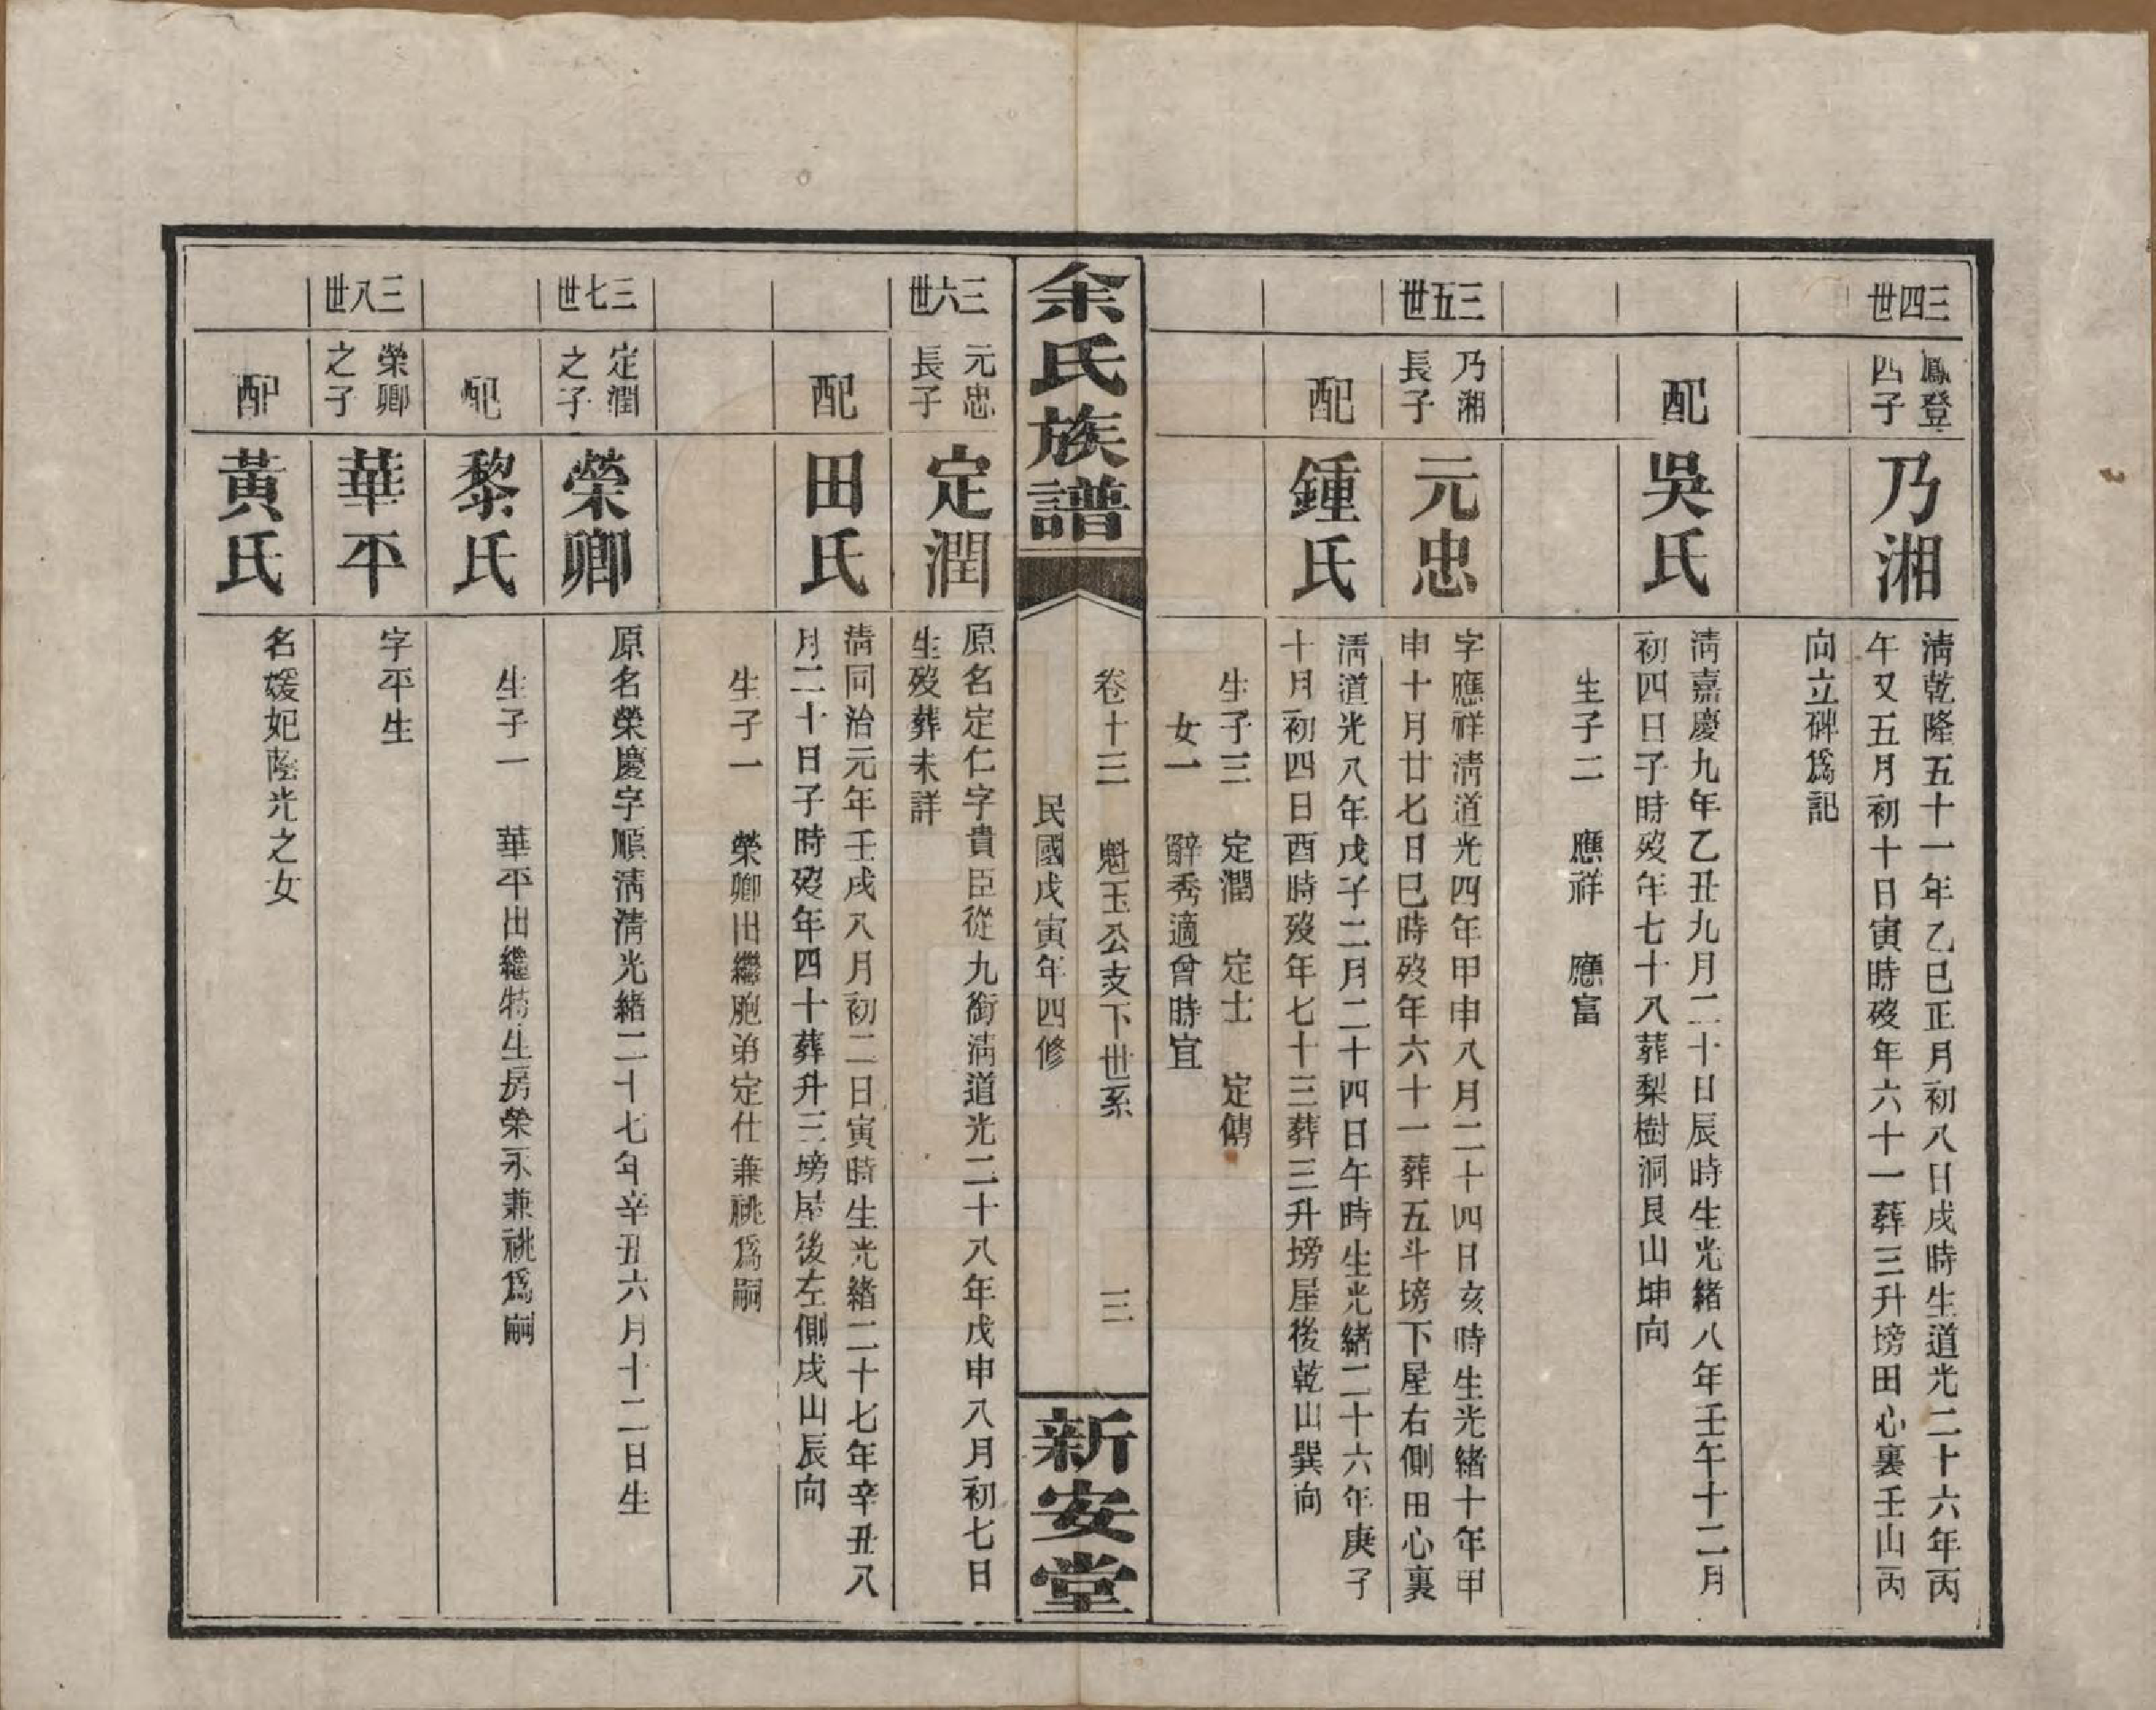 三四世
鳳登
四子
乃湘
淸乾隆五十一年乙巳正月初八日戌時生道光二十六年丙
午又五月初十日寅時歿年六十一葬三升塝田心裏壬山丙
向立碑爲記
配
吳氏
淸嘉慶九年乙丑九月二十日辰時生光緒八年壬午十二月
初四日子時歿年七十八葬梨樹洞艮山坤向
生子二　應祥　應富
三五世
乃湘
長子
元忠
字應祥淸道光四年甲申八月二十四日亥時生光緒十年甲
申十月廿七日巳時歿年六十一葬五斗塝下屋右側田心裏
配
鍾氏
淸道光八年戊子二月二十四日午時生光緒二十六年庚子
十月初四日酉時歿年七十三葬三升塝屋後乾山巽向
生子三　定潤　定士　定儁
女一　辭秀適曾時宜
余氏族譜
卷十三　魁玉公支下世系　三
民國戊寅年四修
新安堂
三六世
元忠
長子
定潤
原名定仁字貴臣從九銜淸道光二十八年戊申八月初七日
生歿葬未詳
配
田氏
淸同治元年壬戌八月初二日寅時生光緒二十七年辛丑八
月二十日子時歿年四十葬升三塝屋後左側戌山辰向
生子一　榮卿出繼胞弟定仕兼祧爲嗣
三七世
定潤
之子
榮卿
原名榮慶字順淸淸光緒二十七年辛丑六月十二日生
配
黎氏
生子一　華平出繼特生房榮禾兼祧爲嗣
三八世
榮卿
之子
華平
字平生
配
黃氏
名媛妃蔭光之女